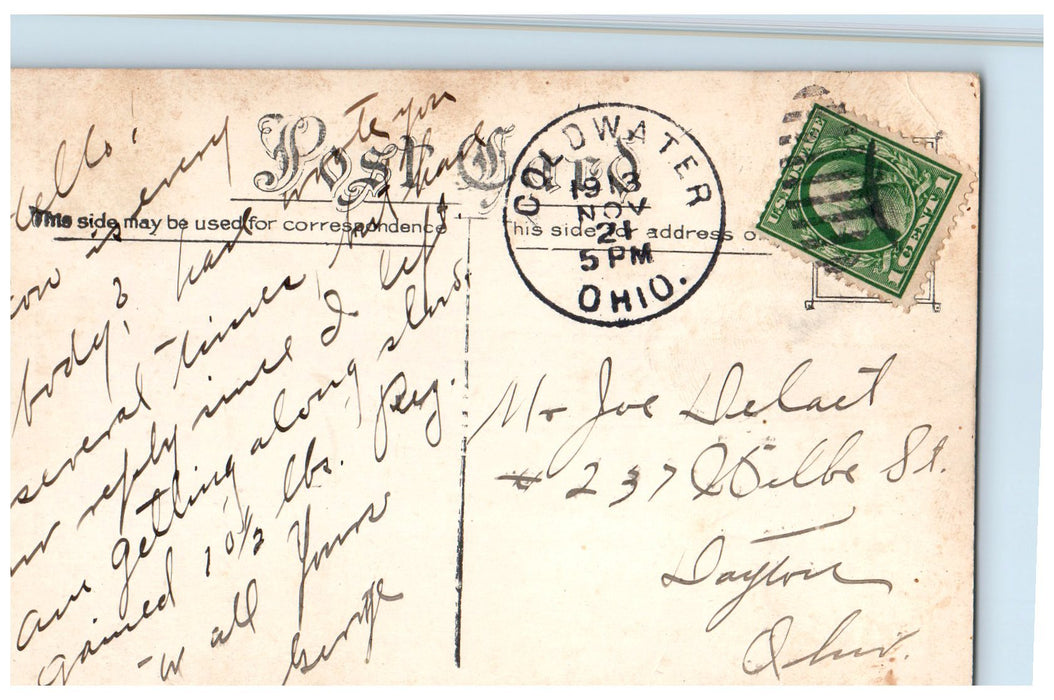 Post Card
This side may be used for correspondence
This side for address o
COLDWATER
1913
NOV
21
5 PM
OHIO.
U.S. POSTAGE
1 CENT 1
ello!
is every
body? have wrote you
several times, but had
reply since I left
am getling along slow.
gained 10½ lbs. Reg.
all Yours
George
Mr Joe DeLaet
# 237 St.
Dayton
Ohio.